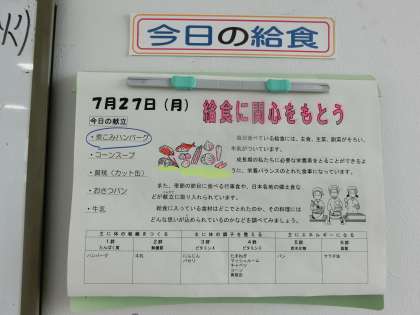 今日の給食
7月27日(月)
給食に関心をもとう
今日の献立
・煮こみハンバーグ
・コーンスープ
・黄桃(カット缶)
・おさつパン
・牛乳
毎日食べている給食には、主食、主菜、副菜がそろい、
牛乳がついています。
成長期の私たちに必要な栄養素をとることができるよ
うに、栄養バランスのとれた食事になっています。
また、季節の節目に食べる行事食や、日本各地の郷土食な
どが献立に取り入れられています。
給食に入っている食材はどこでとれたのか、その料理には
どんな思いが込められているのかなどを調べてみましょう。
主に体の組織をつくる 主に体の調子を整える 主にエネルギーになる
1群 2群 3群 4群 5群 6群
たんぱく質 無機質 ビタミンA ビタミンC 炭水化物 脂質
ハンバーグ 牛乳 にんじん たまねぎ パン サラダ油
パセリ マッシュルーム
キャベツ
コーン
黄桃缶